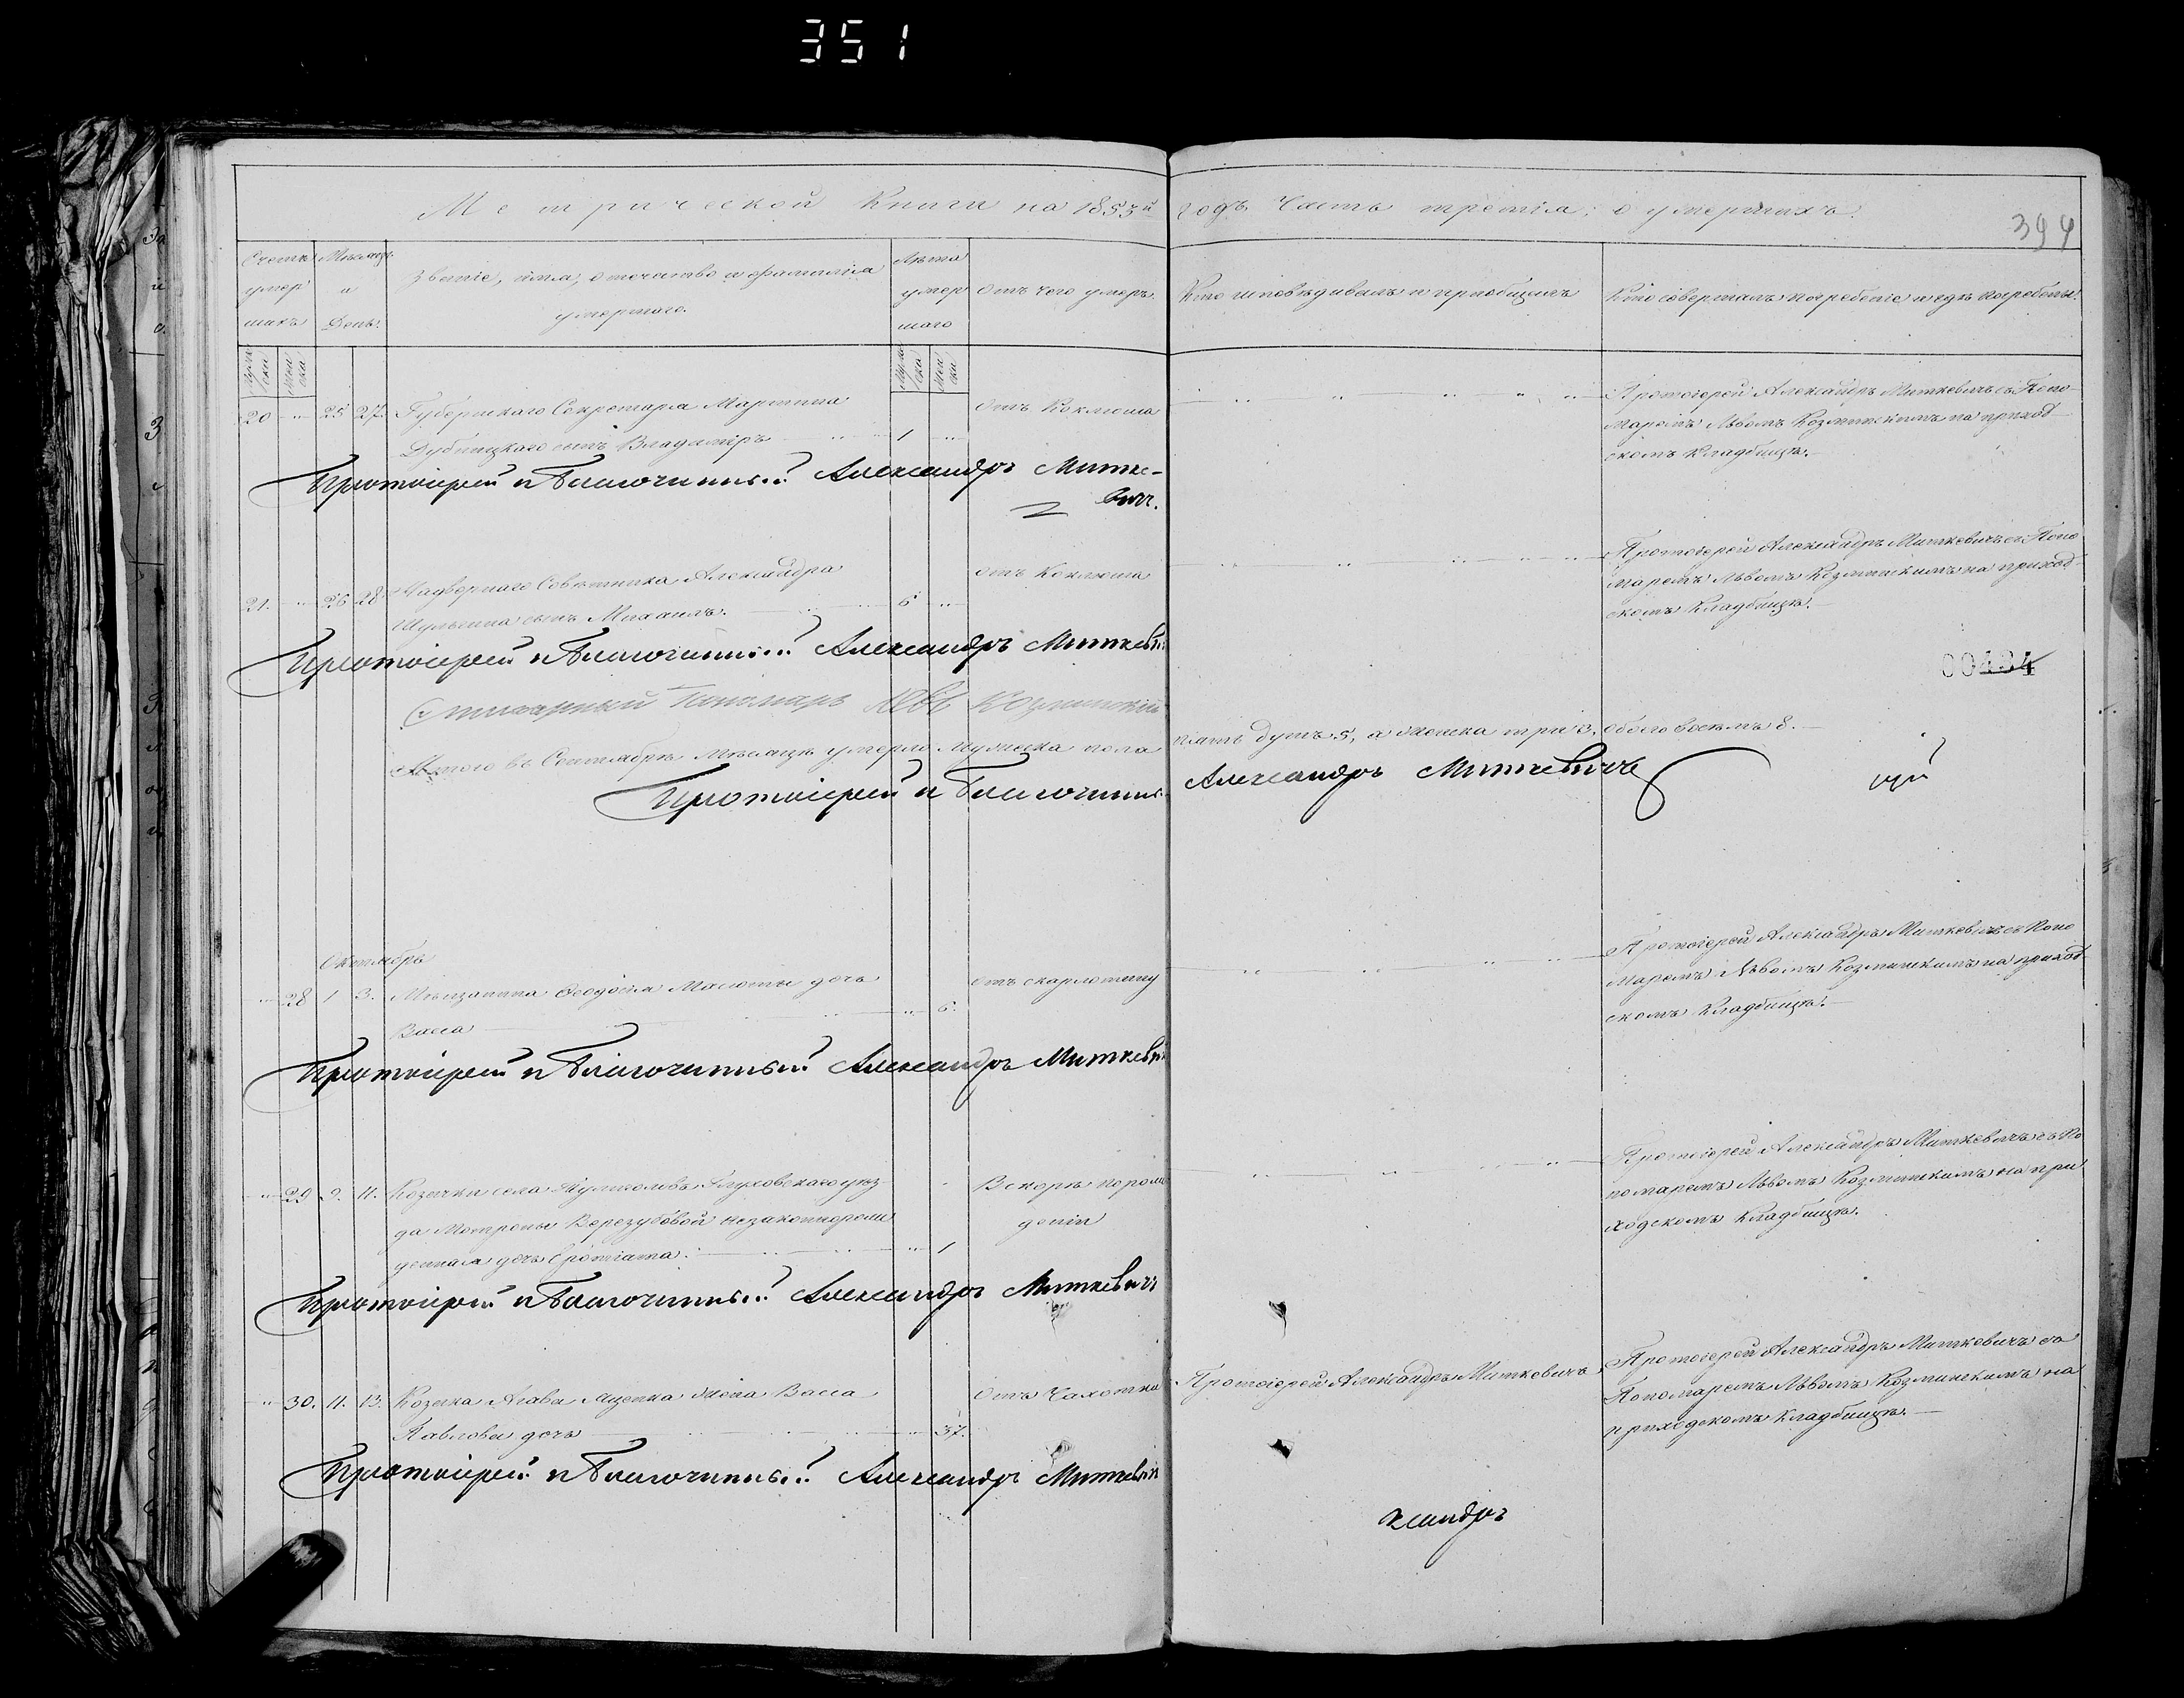 351
Метрической Книги на 1853й годъ Часть третія; о умершихъ.
394
Счетъ умершихъ
Мѣсяцъ и День.
Званіе, имя, отечество и фамилія умершаго.
Лѣта умершаго
Отъ чего умеръ.
Кто исповѣдывалъ и пріобщалъ
Кто совершалъ погребеніе и гдѣ погребены.
Мужески
Женски
Мужески
Женски
20 25 27. Губернскаго Секретаря Мартина
Дубицкаго сынъ Владиміръ 1
отъ Коклюша
Протоіерей Александръ Миткевичъ съ Поно-
маремъ Львомъ Козминскимъ на приход
скомъ Кладбищѣ.
Протоіерей и Благочинный Александръ Митке-
вичъ.
21. 26 28 Надворнаго Совѣтника Александра
Шульгина сынъ Михаилъ. 6
отъ Коклюша
Протоіерей Александръ Миткевичъ съ Поно
маремъ Львомъ Козминскимъ на приход
скомъ Кладбищѣ.
Протоіерей и Благочинный Александръ Миткевичъ
00434
Пономарь Левъ Козминскій
Итого въ Сентябрѣ Мѣсяцѣ умерло Мужеска пола пять душъ 5, а женска три 3, обоего восемь 8.
Протоіерей и Благочинный Александръ Миткевичъ
Октябрь
28 1 3. Мѣщанина Ѳеодосія Малоты дочь
Васса 6.
отъ скарлотину
Протоіерей Александръ Миткевичъ съ Поно
маремъ Львомъ Козминскимъ на приход
скомъ Кладбищѣ.
Протоіерей и Благочинный Александръ Миткевичъ
29 9. 11. Козачки села Глуховскаго уѣз
да Мотроны Верезубовой незаконнорож
денная дочь 1
Вскорѣ по рож
деніи
Протоіерей Александръ Миткевичъ съ По
номаремъ Львомъ Козминскимъ на при
ходскомъ Кладбищѣ.
Протоіерей и Благочинный Александръ Миткевичъ
30. 11. 13. Козака жена Васса
Павлова дочь 37.
Отъ Чахотки
Протоіерей Александръ Миткевичъ
Протоіерей Александръ Миткевичъ съ
Пономаремъ Львомъ Козминскимъ на
приходскомъ Кладбищѣ.
Протоіерей и Благочинный Александръ Миткевичъ
ксандръ